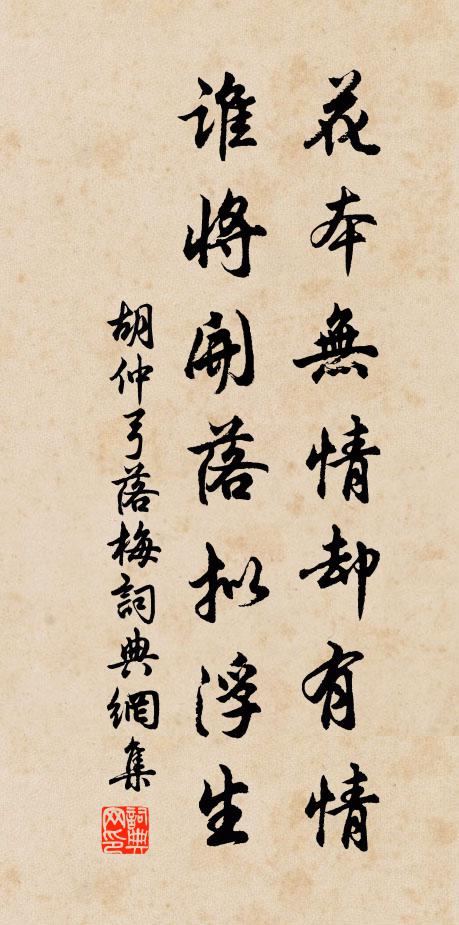 花本無情却有情
誰將開落拟浮生
胡仲弓落梅詞典網集
詞典网印